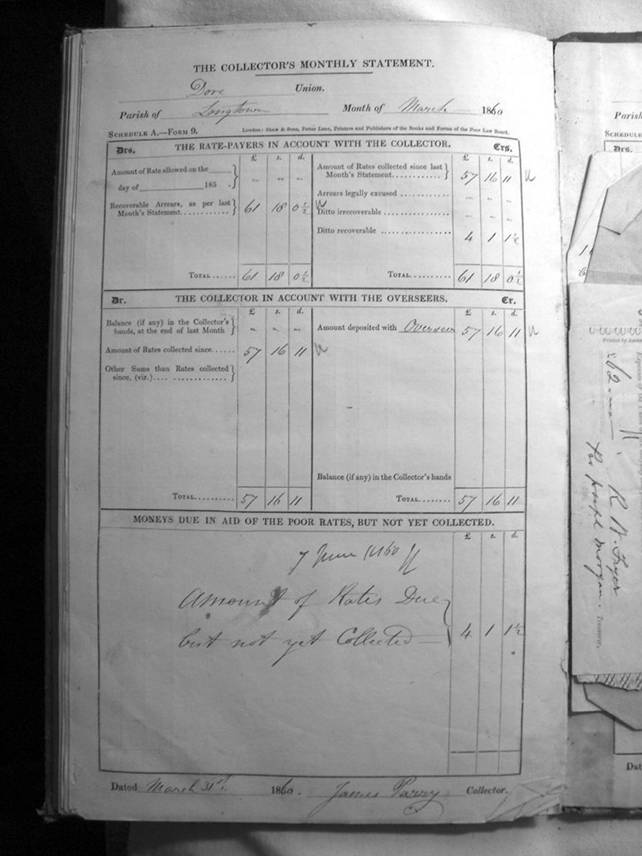 THE COLLECTOR'S MONTHLY STATEMENT.
Dore Union.
Parish of Longtown Month of March 1860
SCHEDULE A.—FORM 9. London: Shaw & Sons, Fetter Lane, Printers and Publishers of the Books and Forms of the Poor Law Board.
Drs. THE RATE-PAYERS IN ACCOUNT WITH THE COLLECTOR. Crs.
£ s. d. £ s. d.
Amount of Rate allowed on the
day of 185 . } " " "
Recoverable Arrears, as per last
Month's Statement } 61 18 0½
TOTAL 61 18 0½
Amount of Rates collected since last
Month's Statement } 57 16 11
Arrears legally excused " " "
Ditto irrecoverable " " "
Ditto recoverable 4 1 1½
TOTAL 61 18 0½
Dr. THE COLLECTOR IN ACCOUNT WITH THE OVERSEERS. Cr.
£ s. d. £ s. d.
Balance (if any) in the Collector's
hands, at the end of last Month } " " "
Amount of Rates collected since 57 16 11
Other Sums than Rates collected
since, (viz.) }
TOTAL 57 16 11
Amount deposited with Overseers 57 16 11
Balance (if any) in the Collector's hands
TOTAL 57 16 11
MONEYS DUE IN AID OF THE POOR RATES, BUT NOT YET COLLECTED.
£ s. d.
7 June 1860
Amount of Rates Due
but not yet Collected } 4 1 1½
Dated March 31st. 1860. James Parry Collector.
Parish
SCHEDULE
Drs.
R. W. Fryer
Joseph Morgan
Treasurer.
Dat